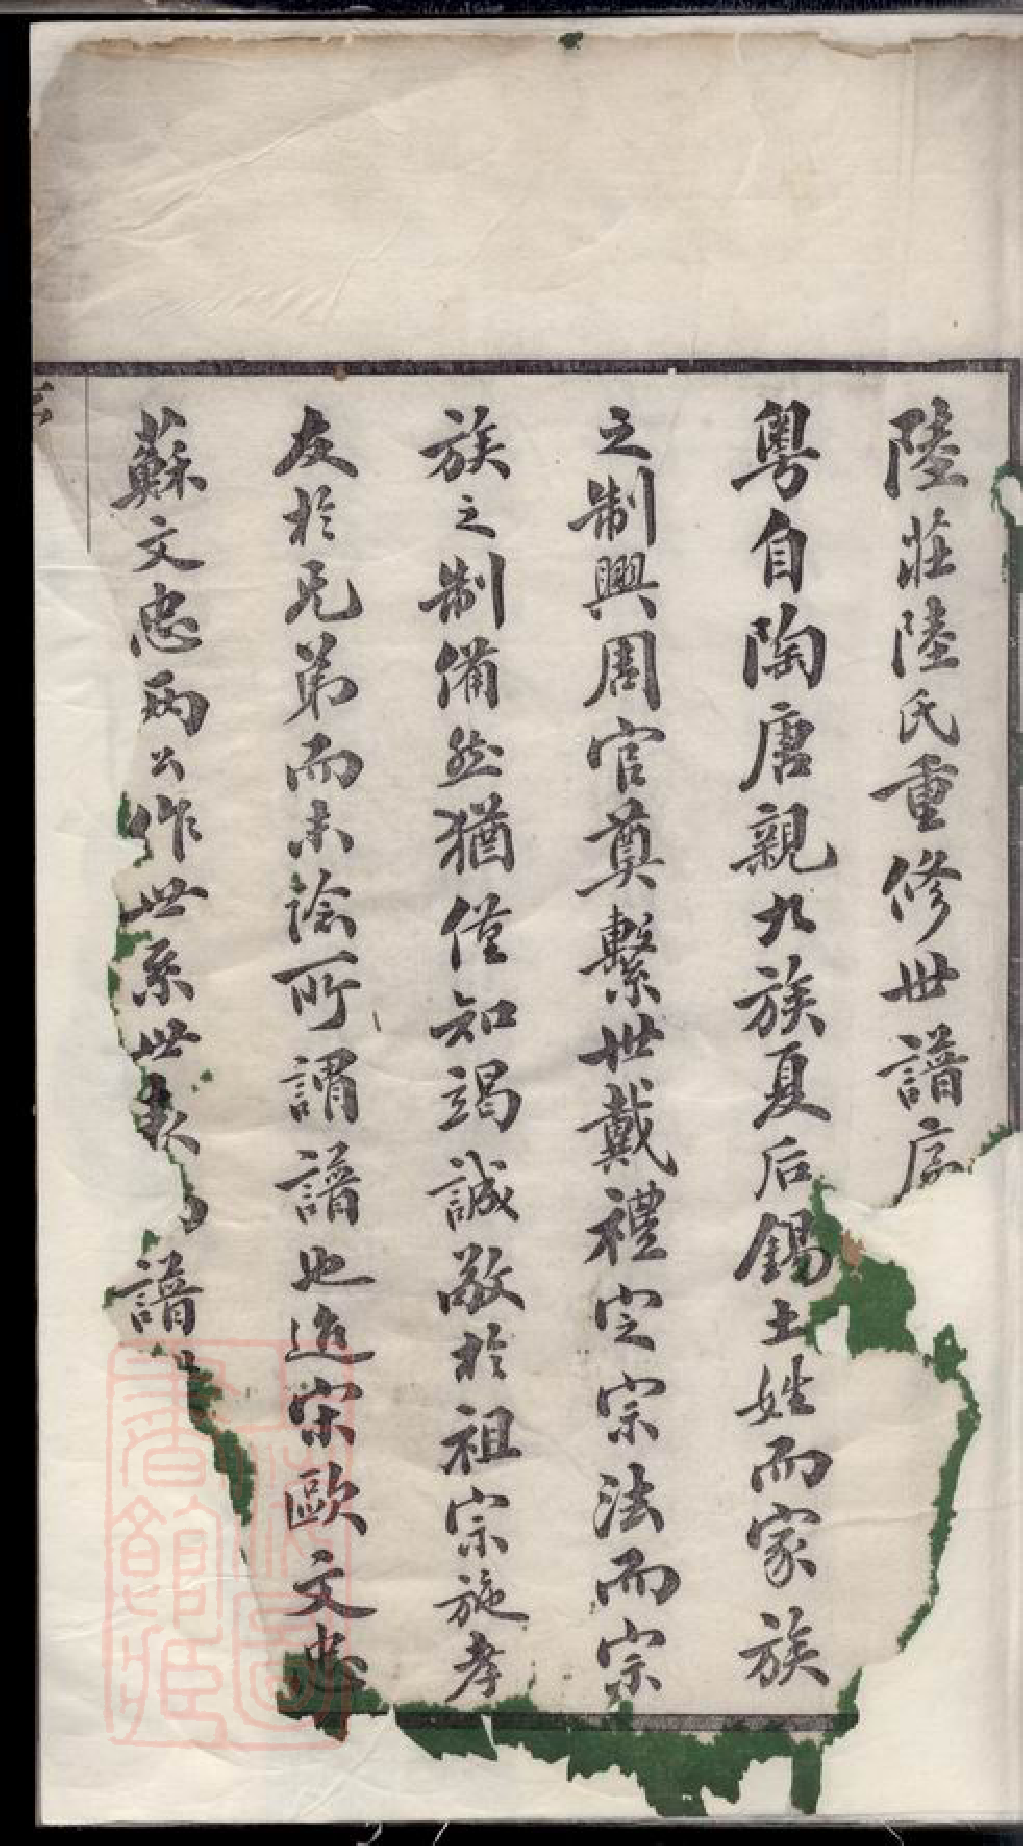 陸莊陸氏重修世譜序
粵自陶唐親九族夏后錫土姓而家族
之制興周官奠繫世戴禮定宗法而宗
族之制備然猶僅知竭誠敬於祖宗施孝
友於兄弟而未諗所謂譜也迨宋歐文忠
蘇文忠兩公作世系世譜